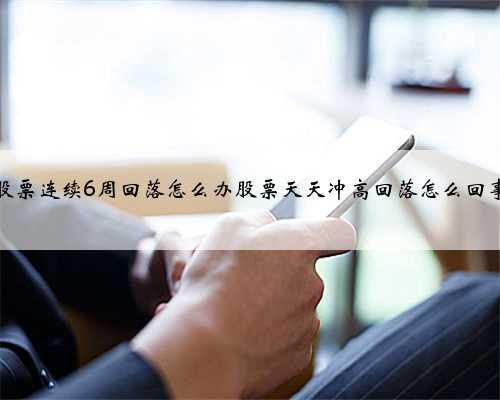 股票连续6周回落怎么办股票天天冲高回落怎么回事